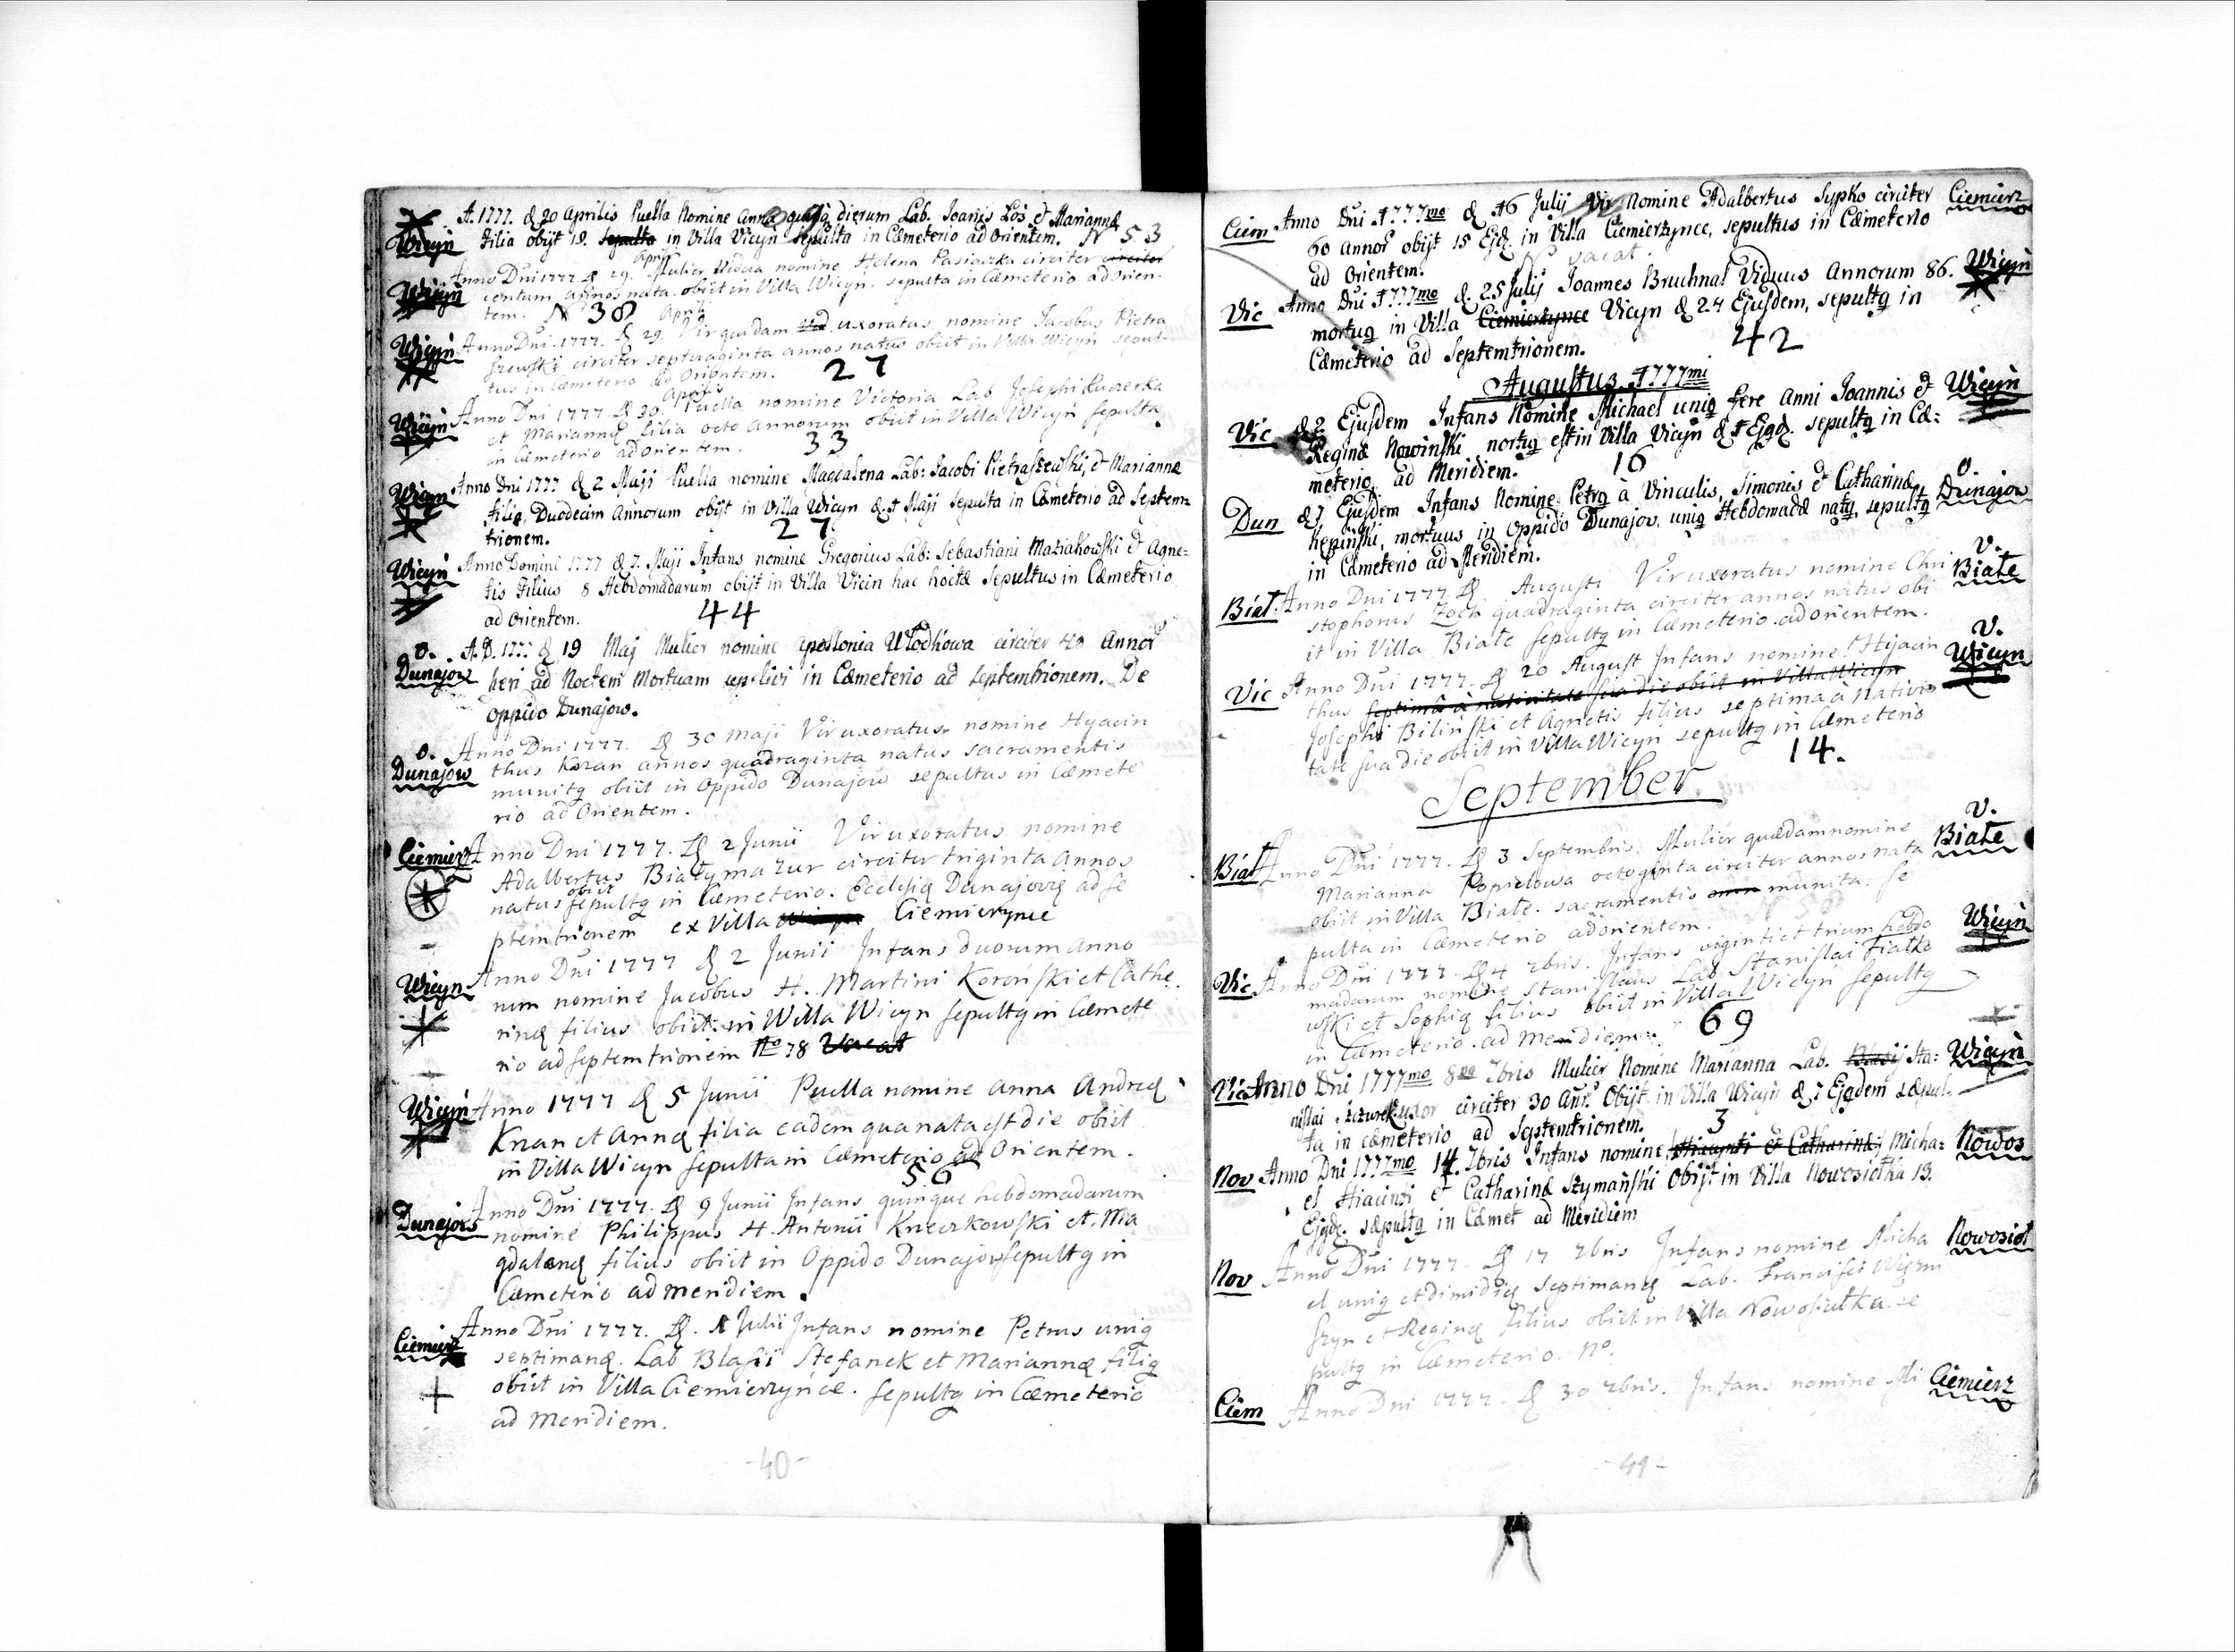 A. 1777. d 20 Aprilis Puella Nomine Anna dierum Lab. Joanis Los et Mariannæ
Wicyn filia obijt 18. sepulta in Villa Vicyn sepulta in Cæmeterio ad Orientem. N 53
Aprilis
Anno Dni 1777. d 29. Mulier Vidua nomine Helena Pasiaczka circiter circiter
Wicyn centum annos nata. obiit in Villa Wicyn. sepulta in Cæmeterio ad Orien-
tem. N 38
Wicyn Anno Dni. 1777. d 29. Vir quidam uxoratus nomine Jacobus Pietra
szewski circiter septuaginta annos natus obiit in Villa Wicyn sepul-
tus in Cæmeterio ad Orientem. 27
Aprilis
Wicyn Anno Dni 1777. d 30. Puella nomine Victoria Lab Josephi Kuczerka
et Mariannæ filia octo Annorum obiit in Villa Wicyn sepulta
in Cæmeterio ad Orientem. 33
Wicyn Anno Dni 1777 d 2 Maji Puella nomine Magdalena Lab: Jacobi Pietraszewski, et Mariannæ
filia, Duodecim Annorum obijt in Villa Wicyn d. 1 Maji sepulta in Cæmeterio ad Septem-
trionem. 27
Wicyn Anno Domini 1777 d 7. Maji Infans nomine Gregorius Lab: Sebastiani Maziakowski et Agne=
tis Filius 8 Hebdomadarum obijt in Villa Vicin hac hocte Sepultus in Cæmeterio
ad Orientem. 44
v. A. D. 1777 d 19 Maj Mulier nomine Apollonia Wlodkowa circiter 40 Annor
Dunajow heri ad Noctem Mortuam in Cæmeterio ad Septemtrionem. De
Oppido Dunajow.
v. Anno Dni 1777. d 30 Maji Vir uxoratus nomine Hyacin
Dunajow thus Koran annos quadraginta natus sacramentis
munitq obiit in Oppido Dunajow sepultus in Cæmete
rio ad Orientem.
Ciemierz Anno Dni 1777. d 2 Junii Vir uxoratus nomine
Adalbertus Białymazur circiter triginta annos
obiit
natus sepultq in Cæmeterio. Ecclesiæ Dunajoviæ ad se
ptemtrionem ex Villa Ciemierzynce
Anno Dni 1777 d 2 Junii Infans duorum anno
Wicyn rum nomine Jacobus H. Martini Koronski et Cathe
rinæ filius obiit in Willa Wicyn sepultq in Cæmete
rio ad septemtrionem No 78 Vacat
Wicyn Anno 1777 d 5 Junii Puella nomine Anna Andreæ
Knan et Annæ filia eadem qua nata est die obiit
in Villa Wicyn sepulta in Cæmeterio ad Orientem.
56
Anno Dni 1777. d 9 Junii Infans quinque hebdomadarum
Dunajow nomine Philippus H. Antonii Kneczkowski et Ma
gdalenæ filius obiit in Oppido Dunajow sepultq in
Cæmeterio ad meridiem.
Anno Dni 1777. d. 1 Julii Infans nomine Petrus uniq
Ciemierz septimanæ. Lab Blasii Stefanek et Mariannæ filiq
obiit in Villa Ciemierzynce. sepultq in Cæmeterio
ad meridiem.
-40-
Ciem Anno Dni 1777mo d 16 Julij Vir Nomine Adalbertus Sypko circiter Ciemierz
60 annor obijt 15 Ejq. in Villa Ciemierzynce, sepultus in Cæmeterio
ad Orientem. N vacat.
Vic Anno Dni 1777mo d. 25 Julij Joannes Bruchnal Viduus Annorum 86. Wicyn
mortuq in Villa Ciemierzynce Vicyn d 24 Ejusdem, sepultq in
Cæmeterio ad Septemtrionem. 42
Augustus. 1777mi
Vic d 2 Ejusdem Infans Nomine Michael uniq fere Anni Joannis et Wicyn
Reginæ Nowinski mortuq est in Villa Vicyn d 1 Ejqd. sepultq in Cæ:
meterio ad Meridiem. 16
Dun d 7 Ejusdem Infans Nomine Petrq à Vinculis, Simonis et Catharinæ v. Dunajow
Kępinski, mortuus in Oppido Dunajov, uniq Hebdomadæ natq, sepultq
in Cæmeterio ad Meridiem.
Biał Anno Dni 1777 d Augusti Vir uxoratus nomine Chri v. Białe
stophorus Zoch quadraginta circiter annos natus obi
it in Villa Białe sepultq in Cæmeterio ad orientem.
Vic Anno Dni 1777. d 20 August Infans nomine Hijacin v. Wicyn
thus septima à nativitate sua die obiit in Villa Wicyn
Josephi Bilinski et Agnetis filius septima à nativi
tate sua die obiit in Villa Wicyn sepultq in Cæmeterio
14.
September.
Biał Anno Dni 1777. d 3 Septembris. Mulier quædam nomine v. Białe
Marianna Popielowa octoginta circiter annos nata
obiit in Villa Białe. sacramentis munita. se
pulta in Cæmeterio ad orientem.
Vic Anno Dni 1777. d 4 7bris. Infans viginti et trium hebdo Wicyn
madarum nomine Stanislaus Lab Stanislai Fiałko
wski et Sophiæ filius obiit in Villa Wicyn sepultq
in Cæmeterio. ad Meridiem. 69
Vic Anno Dni 1777mo 8va 7bris Mulier Nomine Marianna Lab. Blasij Sta: Wicyn
nislai Szczurek uxor circiter 30 Anr. Obijt in Villa Wicyn d 7 Ejqdem sæpul-
ta in cæmeterio ad Septemtrionem. 3
Nov Anno Dni 1777mo 14. 7bris Infans nomine Hiacynti et Catharinæ Micha: Nowos
el Hiacinti et Catharinæ Szymański Obijt in Villa Nowosiołka 13.
Ejqd. sæpultq in Cæmet ad Meridiem
Nov Anno Dni 1777 d 17 7bris Infans nomine Micha Nowosioł
el uniq et dimidiæ septimanæ Lab. Francisci
szyn et Reginæ filius obiit in Villa Nowosiułka. se
pultq in Cæmeterio. No.
Ciem Anno Dni 1777. d 30 7bris. Infans nomine Mi Ciemierz
-41-